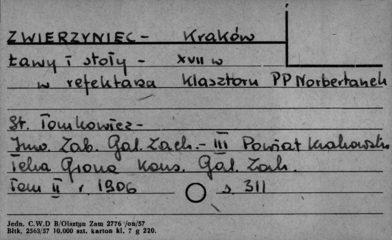 ZWIERZYNIEC - Kraków
Ławy i stoły - XVII w
w refektarzu Klasztoru PP Norbertanek
St. Tomkowicz -
Inw. Zab. Gal. Zach. - III Powiat Krakowski
Teka Grona Kons. Gal. Zach.
Tom II r. 1906 s. 311
Jedn. C.W.D B/Olsztyn Zam 2776 /on/57
Bltk. 2563/57 10.000 szt. karton kl. 7 g 220.